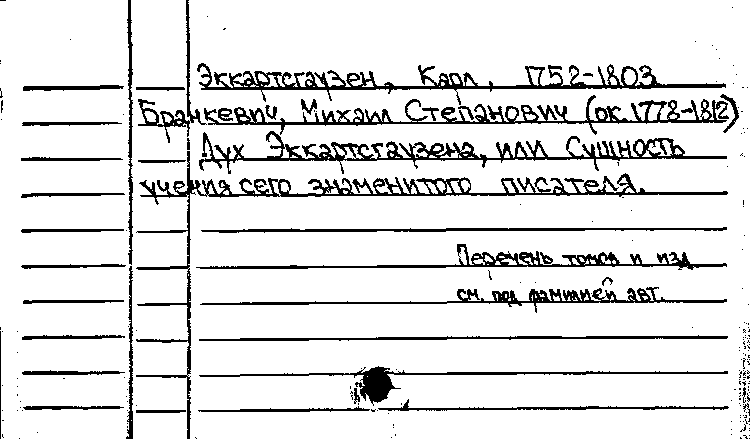 Эккартсгаузен, Карл, 1752-1803
Бранкевич, Михаил Степанович (ок.1778-1812)
Дух Эккартсгаузена, или Сущность
учения сего знаменитого писателя.
Перечень томов и изд
см. под фамилией авт.